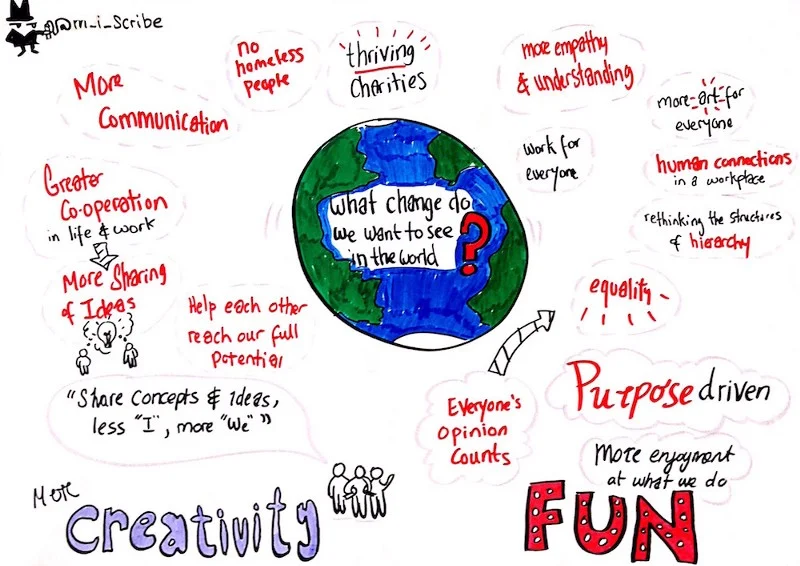 @m_i_Scribe
no
homeless
people
thriving
Charities
more empathy
& understanding
More
Communication
more art for
everyone
work for
everyone
human connections
in a workplace
Greater
Co-operation
in life & work
What change do
we want to see
in the world
?
rethinking the structures
of hierarchy
More Sharing
of Ideas
equality
Help each other
reach our full
Potential
Purpose driven
"Share Concepts & Ideas,
less "I", more "We" "
Everyone's
Opinion
Counts
More enjoyment
at what we do
More
Creativity
FUN